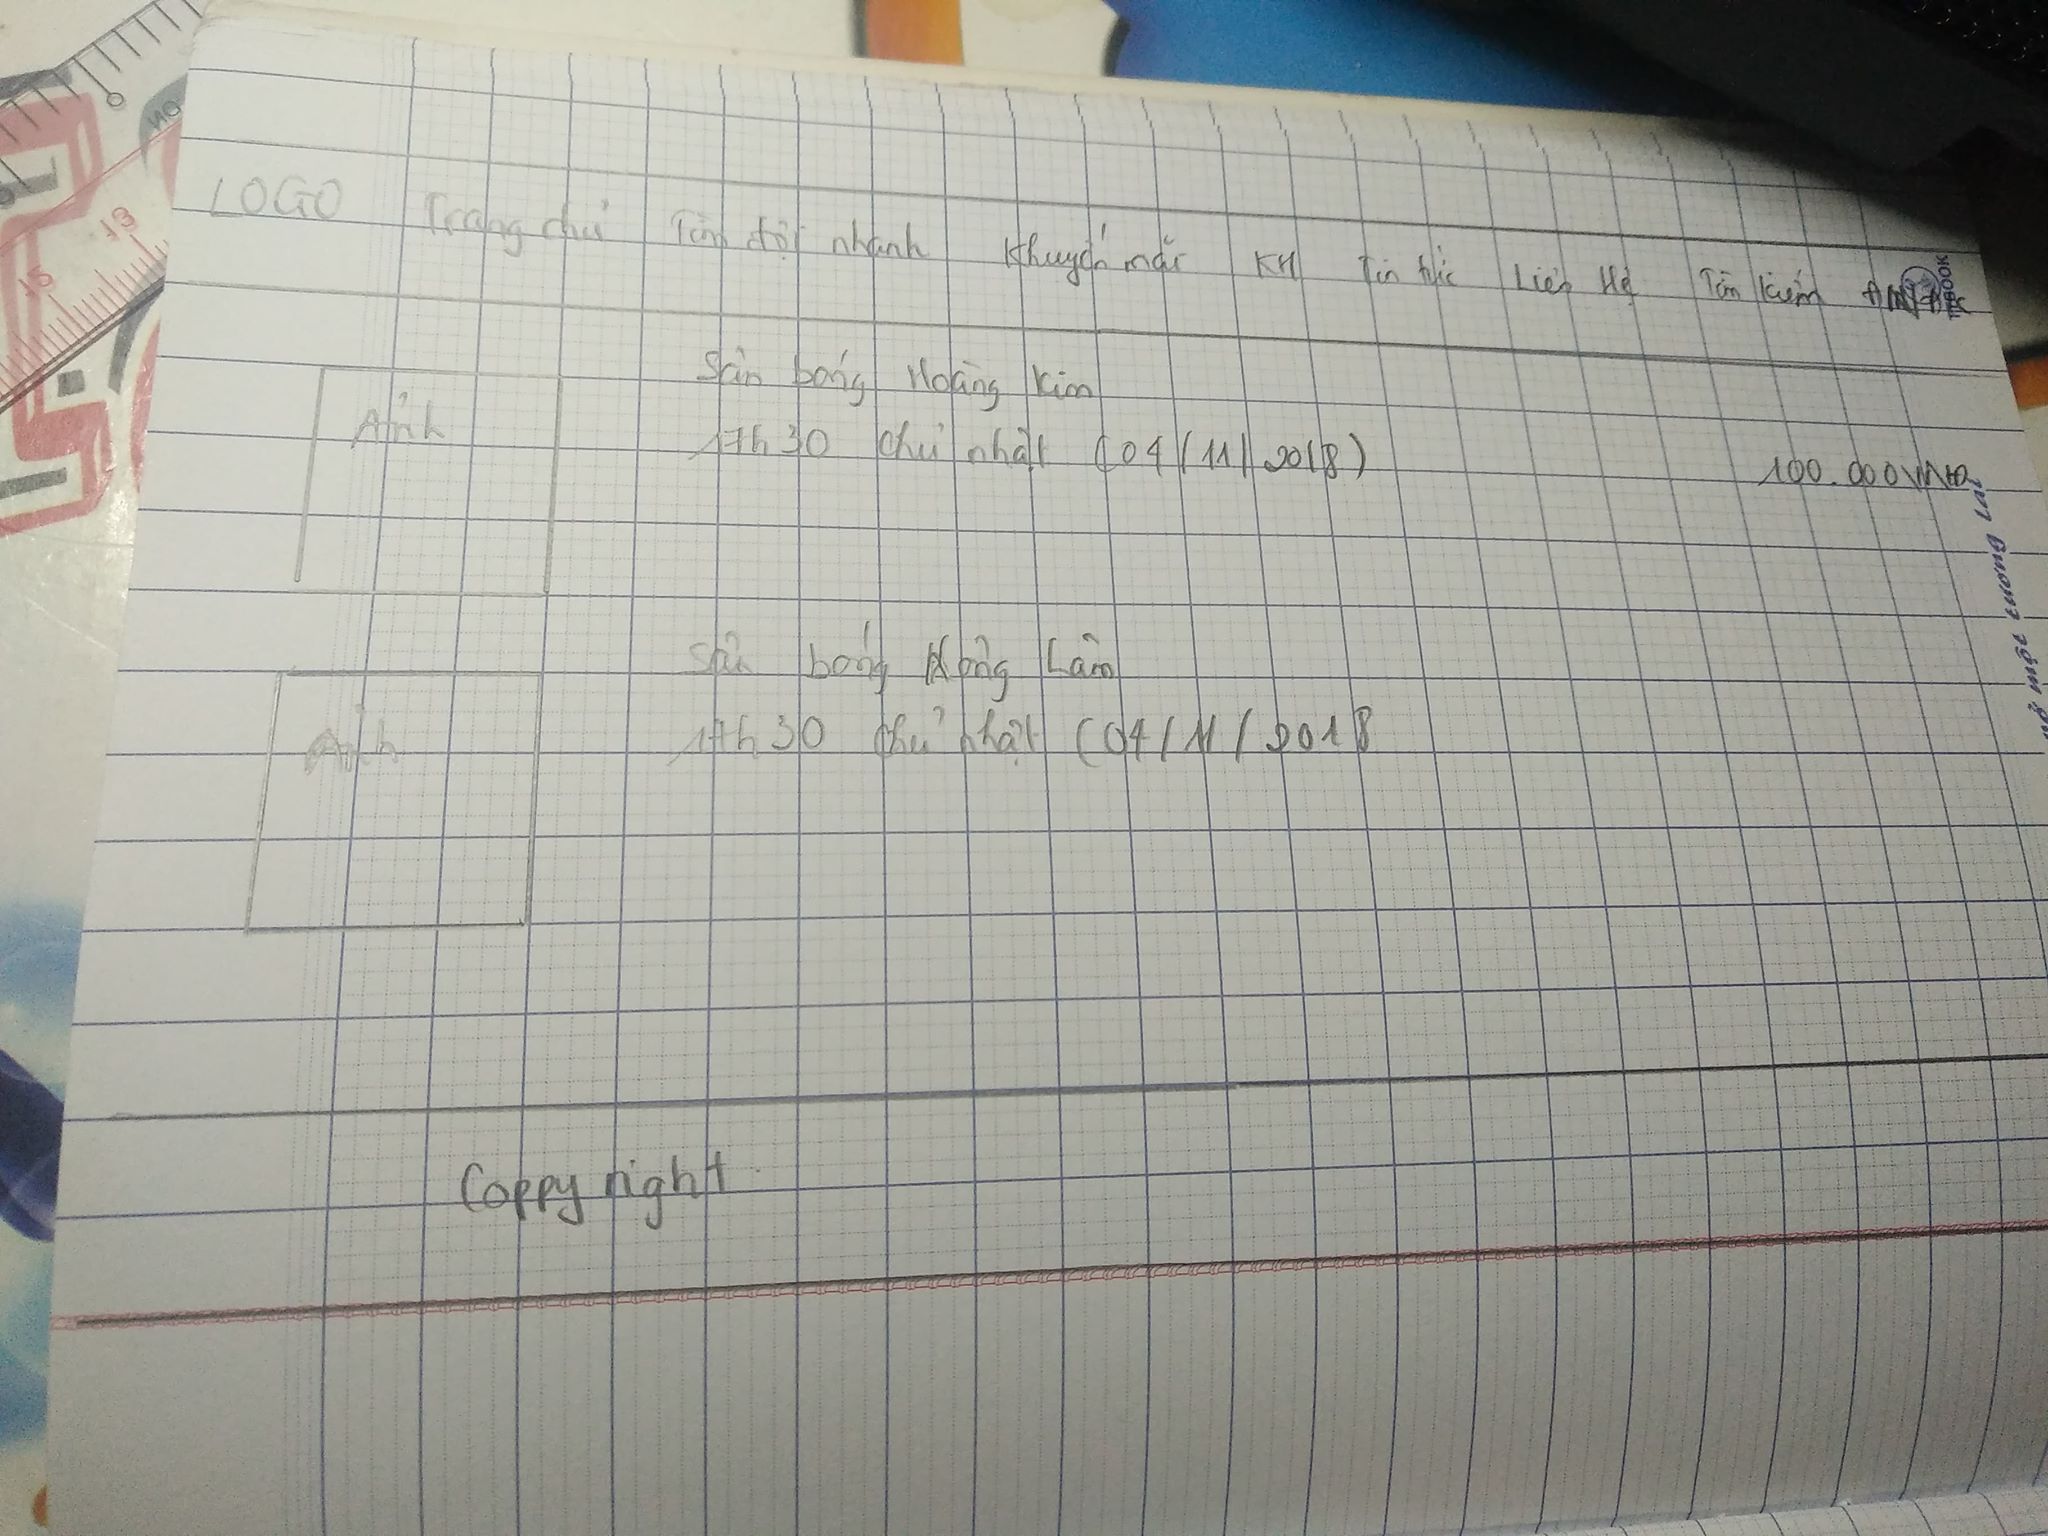 LOGO Trang chủ Tìm đội nhanh Khuyến mãi KH Tin tức Liên Hệ Tìm kiếm
Ảnh
Sân bóng Hoàng Kim
17h30 chủ nhật (04/11/2018)
100.000VNĐ
Ảnh
Sân bóng Hồng Lâm
17h30 chủ nhật (04/11/2018
Coppy right
một tương lai
13
15